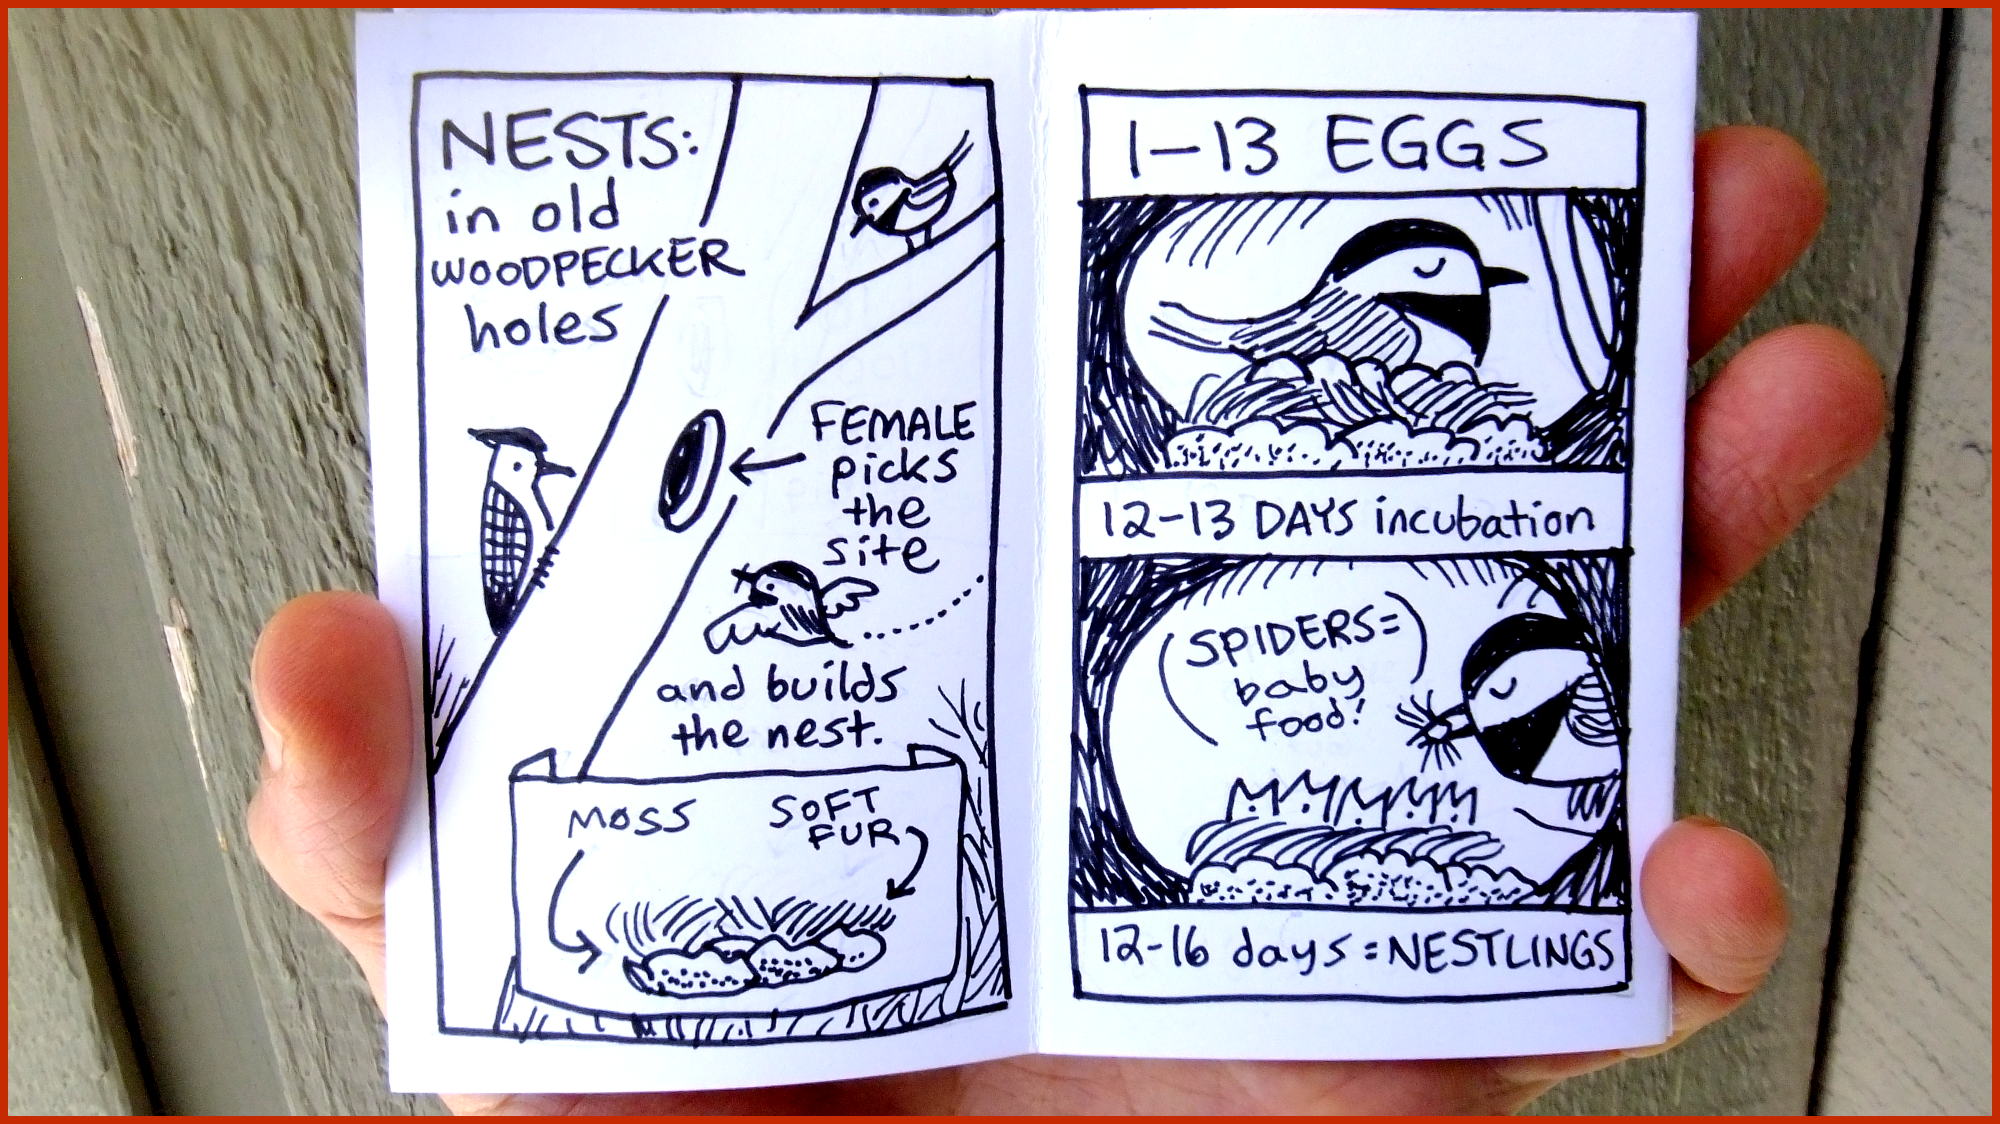 NESTS:
in old
WOODPECKER
holes
FEMALE
picks
the
site
and builds
the nest.
MOSS
SOFT
FUR
1-13 EGGS
12-13 DAYS incubation
(SPIDERS=
baby
food!)
12-16 days = NESTLINGS